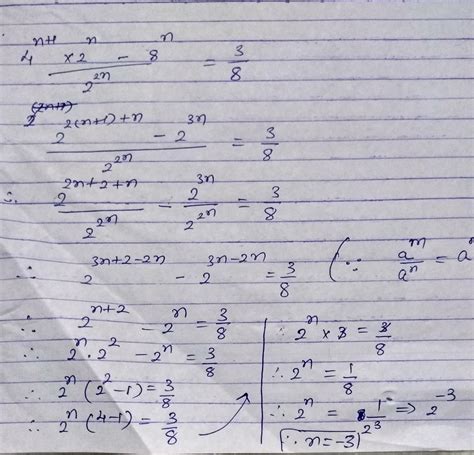 4^{n+1} × 2^n − 8^n / 2^{2n} = 3/8
2^{2(n+1)+n} − 2^{3n} / 2^{2n} = 3/8
∴ 2^{2n+2+n} / 2^{2n} − 2^{3n} / 2^{2n} = 3/8
∴ 2^{3n+2−2n} − 2^{3n−2n} = 3/8 (∵ a^m / a^n = a
∴ 2^{n+2} − 2^n = 3/8
∴ 2^n · 2^2 − 2^n = 3/8
∴ 2^n (2^2 − 1) = 3/8
∴ 2^n (4−1) = 3/8
∴ 2^n × 3 = 3/8
∴ 2^n = 1/8
∴ 2^n = 1/2^3 ⇒ 2^{−3}
∴ n = −3